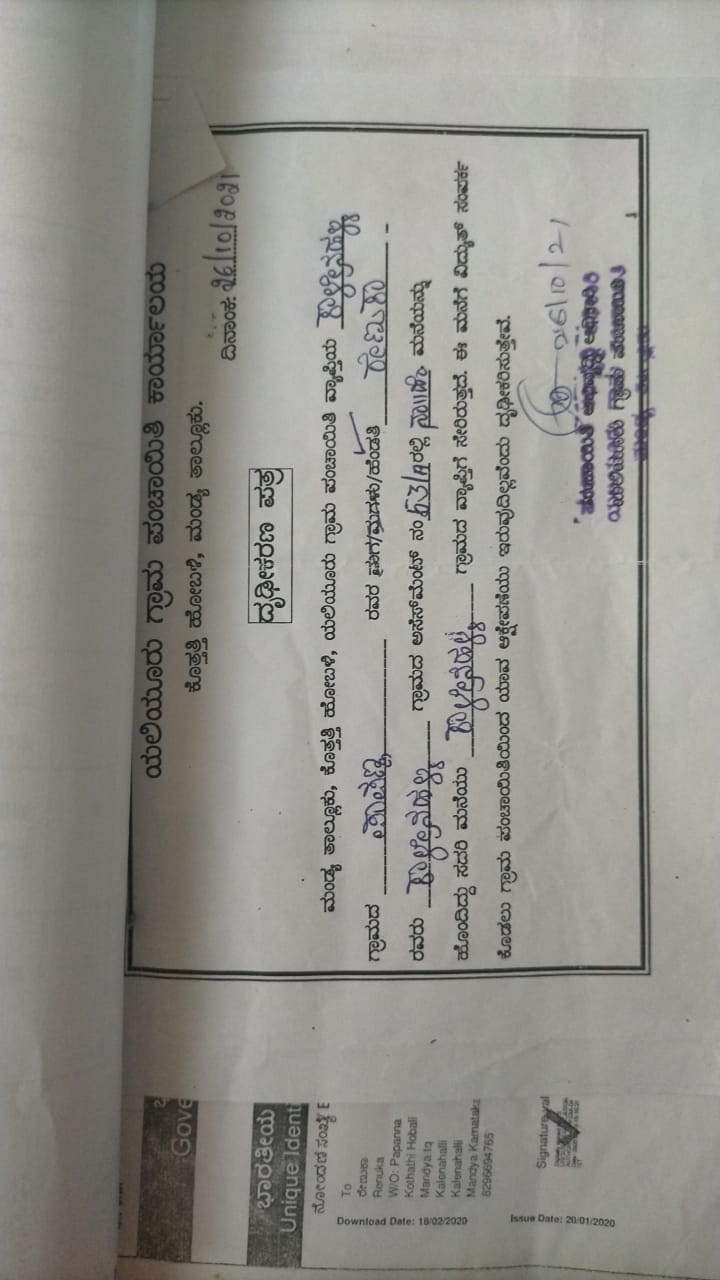 ಯಲಿಯೂರು ಗ್ರಾಮ ಪಂಚಾಯಿತಿ ಕಾರ್ಯಾಲಯ
ಕೊತ್ತತ್ತಿ ಹೋಬಳಿ, ಮಂಡ್ಯ ತಾಲ್ಲೂಕು.
ದಿನಾಂಕ: 26/10/2021
ದೃಢೀಕರಣ ಪತ್ರ
ಮಂಡ್ಯ ತಾಲ್ಲೂಕು, ಕೊತ್ತತ್ತಿ ಹೋಬಳಿ, ಯಲಿಯೂರು ಗ್ರಾಮ ಪಂಚಾಯಿತಿ ವ್ಯಾಪ್ತಿಯ ಕಾಳೇನಹಳ್ಳಿ
ಗ್ರಾಮದ ಪಾಪಣ್ಣ ರವರ ಮಗ/ಮಗಳು/ಹೆಂಡತಿ ರೇಣುಕಾ
ರವರು ಕಾಳೇನಹಳ್ಳಿ ಗ್ರಾಮದ ಅಸೆಸ್‌ಮೆಂಟ್ ನಂ ರಲ್ಲಿ ಮನೆಯನ್ನು
ಹೊಂದಿದ್ದು ಸದರಿ ಮನೆಯು ಕಾಳೇನಹಳ್ಳಿ ಗ್ರಾಮದ ವ್ಯಾಪ್ತಿಗೆ ಸೇರಿರುತ್ತದೆ. ಈ ಮನೆಗೆ ವಿದ್ಯುತ್ ಸಂಪರ್ಕ
ಕೊಡಲು ಗ್ರಾಮ ಪಂಚಾಯಿತಿಯಿಂದ ಯಾವ ಆಕ್ಷೇಪಣೆಯು ಇರುವುದಿಲ್ಲವೆಂದು ದೃಢೀಕರಿಸುತ್ತೇವೆ.
26/10/21
ಪಂಚಾಯಿತಿ ಅಭಿವೃದ್ಧಿ ಅಧಿಕಾರಿ
ಯಲಿಯೂರು ಗ್ರಾಮ ಪಂಚಾಯಿತಿ
Gove
ಭಾರತೀಯ
Unique Identi
ನೋಂದಣಿ ಸಂಖ್ಯೆ/ E
To
ರೇಣುಕಾ
Renuka
W/O: Papanna
Kothathi Hobali
Mandya tq
Kalenahalli
Kalenahalli
Mandya Karnataka
8296694765
Signature val
Download Date: 18/02/2020
Issue Date: 20/01/2020